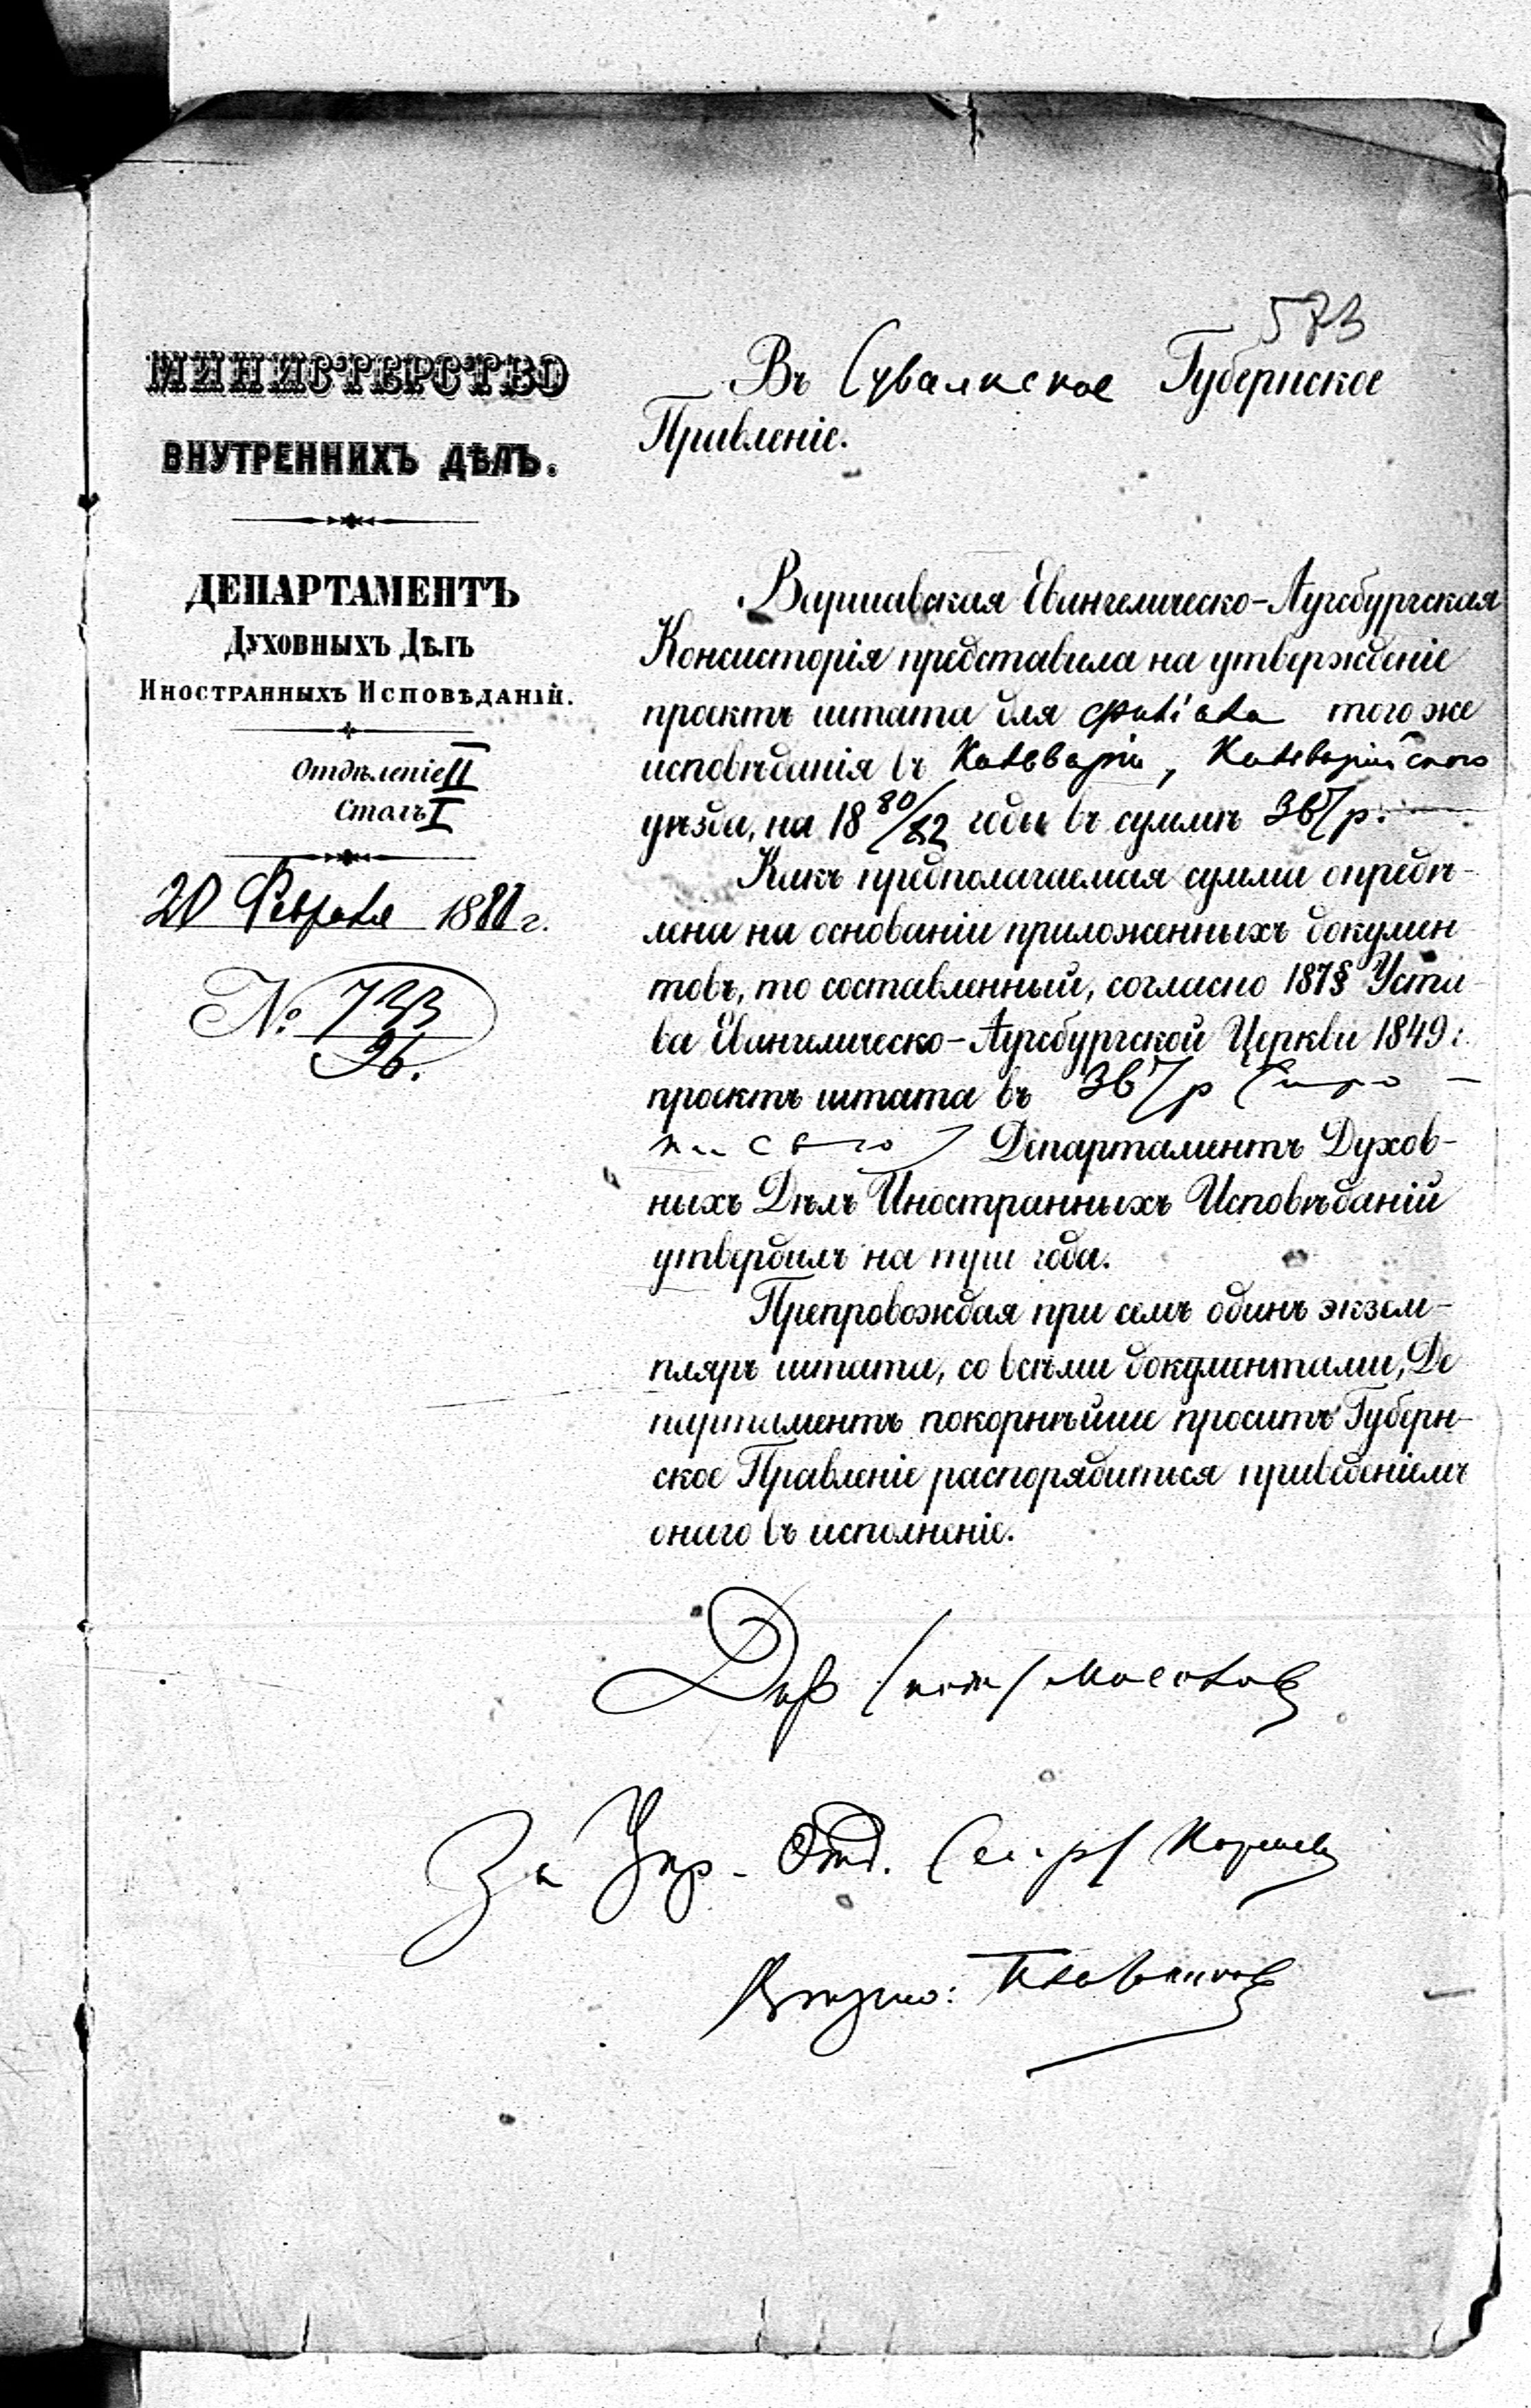 573
МИНИСТЕРСТВО
ВНУТРЕННИХЪ ДѢЛЪ.
ДЕПАРТАМЕНТЪ
Духовныхъ Дѣлъ
Иностранныхъ Исповѣданій.
Отдѣленіе II
Столъ I
20 Февраля 1880 г.
№ 733
96.
Въ Сувалкское Губернское
Правленіе.
Варшавская Евангелическо-Аугсбургская
Консисторія представила на утвержденіе
проектъ штата для филіала того же
исповѣданія въ Кальваріи, Кальварійскаго
уѣзда, на 1880/82 годы въ суммѣ 367 р.
Какъ предполагаемая сумма опредѣ-
лена на основаніи приложенныхъ докумен
товъ, то составленный, согласно 187§ Уста-
ва Евангелическо-Аугсбургской Церкви 1849 г.
проектъ штата въ 367 р
Департаментъ Духов-
ныхъ Дѣлъ Иностранныхъ Исповѣданій
утвердилъ на три года.
Препровождая при семъ одинъ экзем-
пляръ штата, со всѣми документами, Де
партаментъ покорнѣйше проситъ Губерн-
ское Правленіе распорядиться приведеніемъ
онаго въ исполненіе.
Дир (подп) Мосолов
За Упр. Отд.